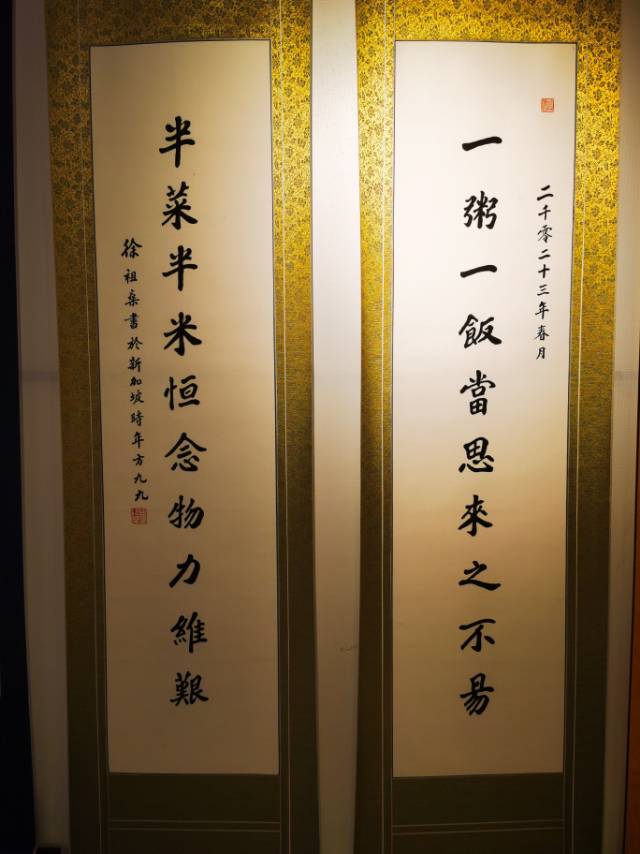 二千零二十三年春月
一粥一飯當思來之不易
半菜半米恒念物力維艱
徐祖燊書於新加坡時年方九九